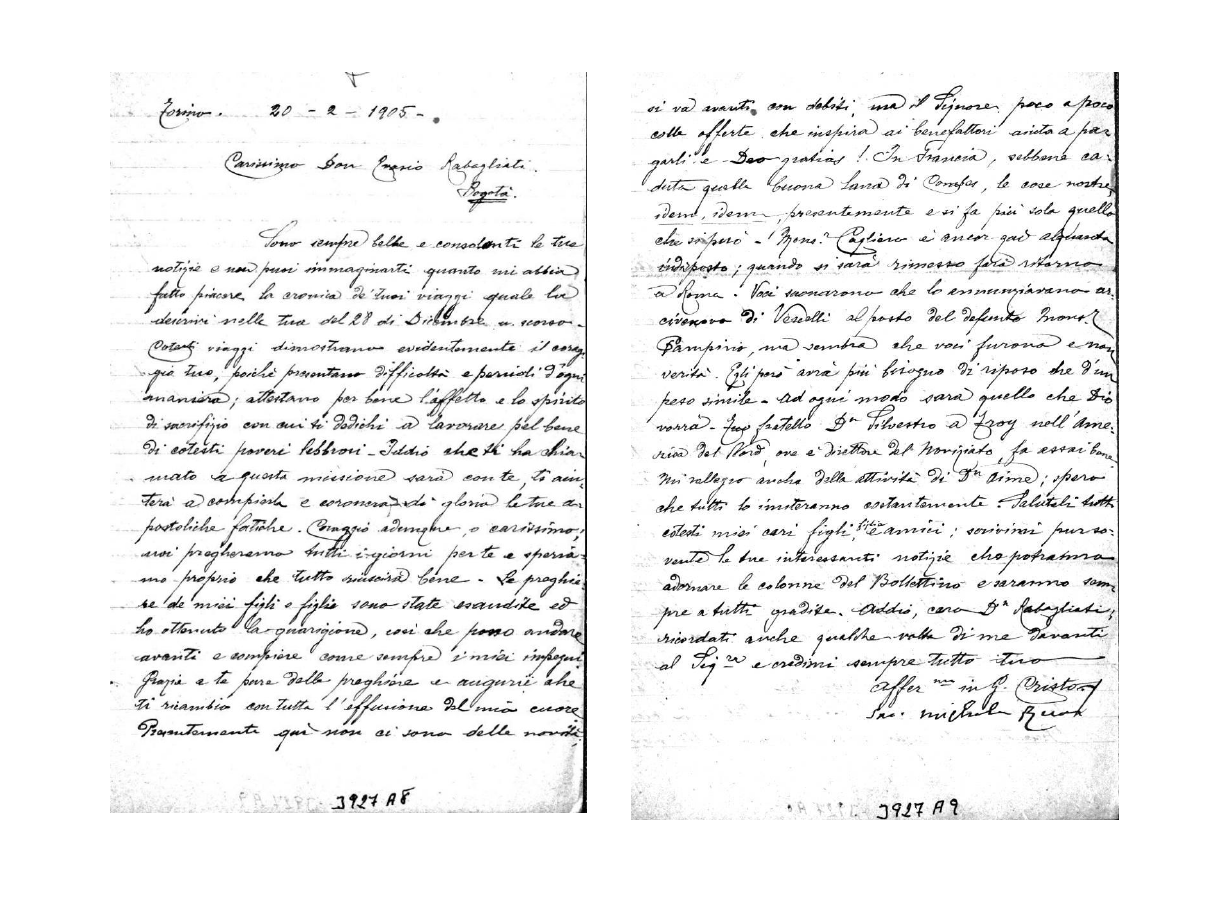 Torino. 20 - 2 - 1905 -
Carissimo Don Evasio Rabagliati.
Bogotà.
Sono sempre belle e consolanti le tue
notizie e non puoi immaginarti quanto mi abbia
fatto piacere la cronica de' tuoi viaggi quale la
descrivi nella tua del 28 di Dicembre u. scorso -
Cotesti viaggi dimostrano evidentemente il corag-
gio tuo, poichè presentano difficoltà e pericoli d'ogni
maniera; attestano per bene l'affetto e lo spirito
di sacrifizio con cui ti dedichi a lavorare pel bene
di cotesti poveri lebbrosi - Iddio che ti ha chia-
mato a questa missione sarà con te, ti aiu-
terà a compierla e coronerà di gloria le tue a-
postoliche fatiche. Coraggio adunque, o carissimo;
noi pregheremo tutti i giorni per te e speria-
mo proprio che tutto riuscirà bene - Le preghie-
re de' miei figli e figlie sono state esaudite ed
ho ottenuto la guarigione, così che posso andare
avanti e compiere come sempre i miei impegni
Grazie a te pure delle preghiere e augurii che
ti ricambio con tutta l'effusione del mio cuore
Presentemente qui non ci sono delle novità;
J927 A8
si va avanti con debiti, ma il Signore poco a poco
colle offerte che inspira ai benefattori aiuta a pa-
garli e Deo gratias! In Francia, sebbene ca-
duta quella buona lana di Combes, le cose nostre
idem, idem, presentemente e si fa più solo quello
che si può - Mons.r Cagliero è ancor qui alquanto
indisposto; quando si sarà rimesso farà ritorno
a Roma. Voci suonarono che lo annunziavano ar-
civescovo di Vercelli al posto del defunto Mons.r
Pampirio, ma sembra che voci furono e non
verità. Egli però avrà più bisogno di riposo che d'un
peso simile - Ad ogni modo sarà quello che Dio
vorrà - Tuo fratello D.n Silvestro a Troy nell'Ame-
rica del Nord, ove è direttore del Noviziato, fa assai bene.
Mi rallegro anche della attività di D.n Aime; spero
che tutti lo imiteranno costantemente. Salutali tutti
cotesti miei cari figli, figlie e amici; scrivimi pur so-
vente le tue interessanti notizie che potranno
adornare le colonne del Bollettino e saranno sem-
pre a tutti gradite. Addio, caro D.n Rabagliati;
ricordati anche qualche volta di me davanti
al Sig.re e credimi sempre tutto tuo
Affez.mo in G. Cristo
Sac. Michele Rua
J927 A9